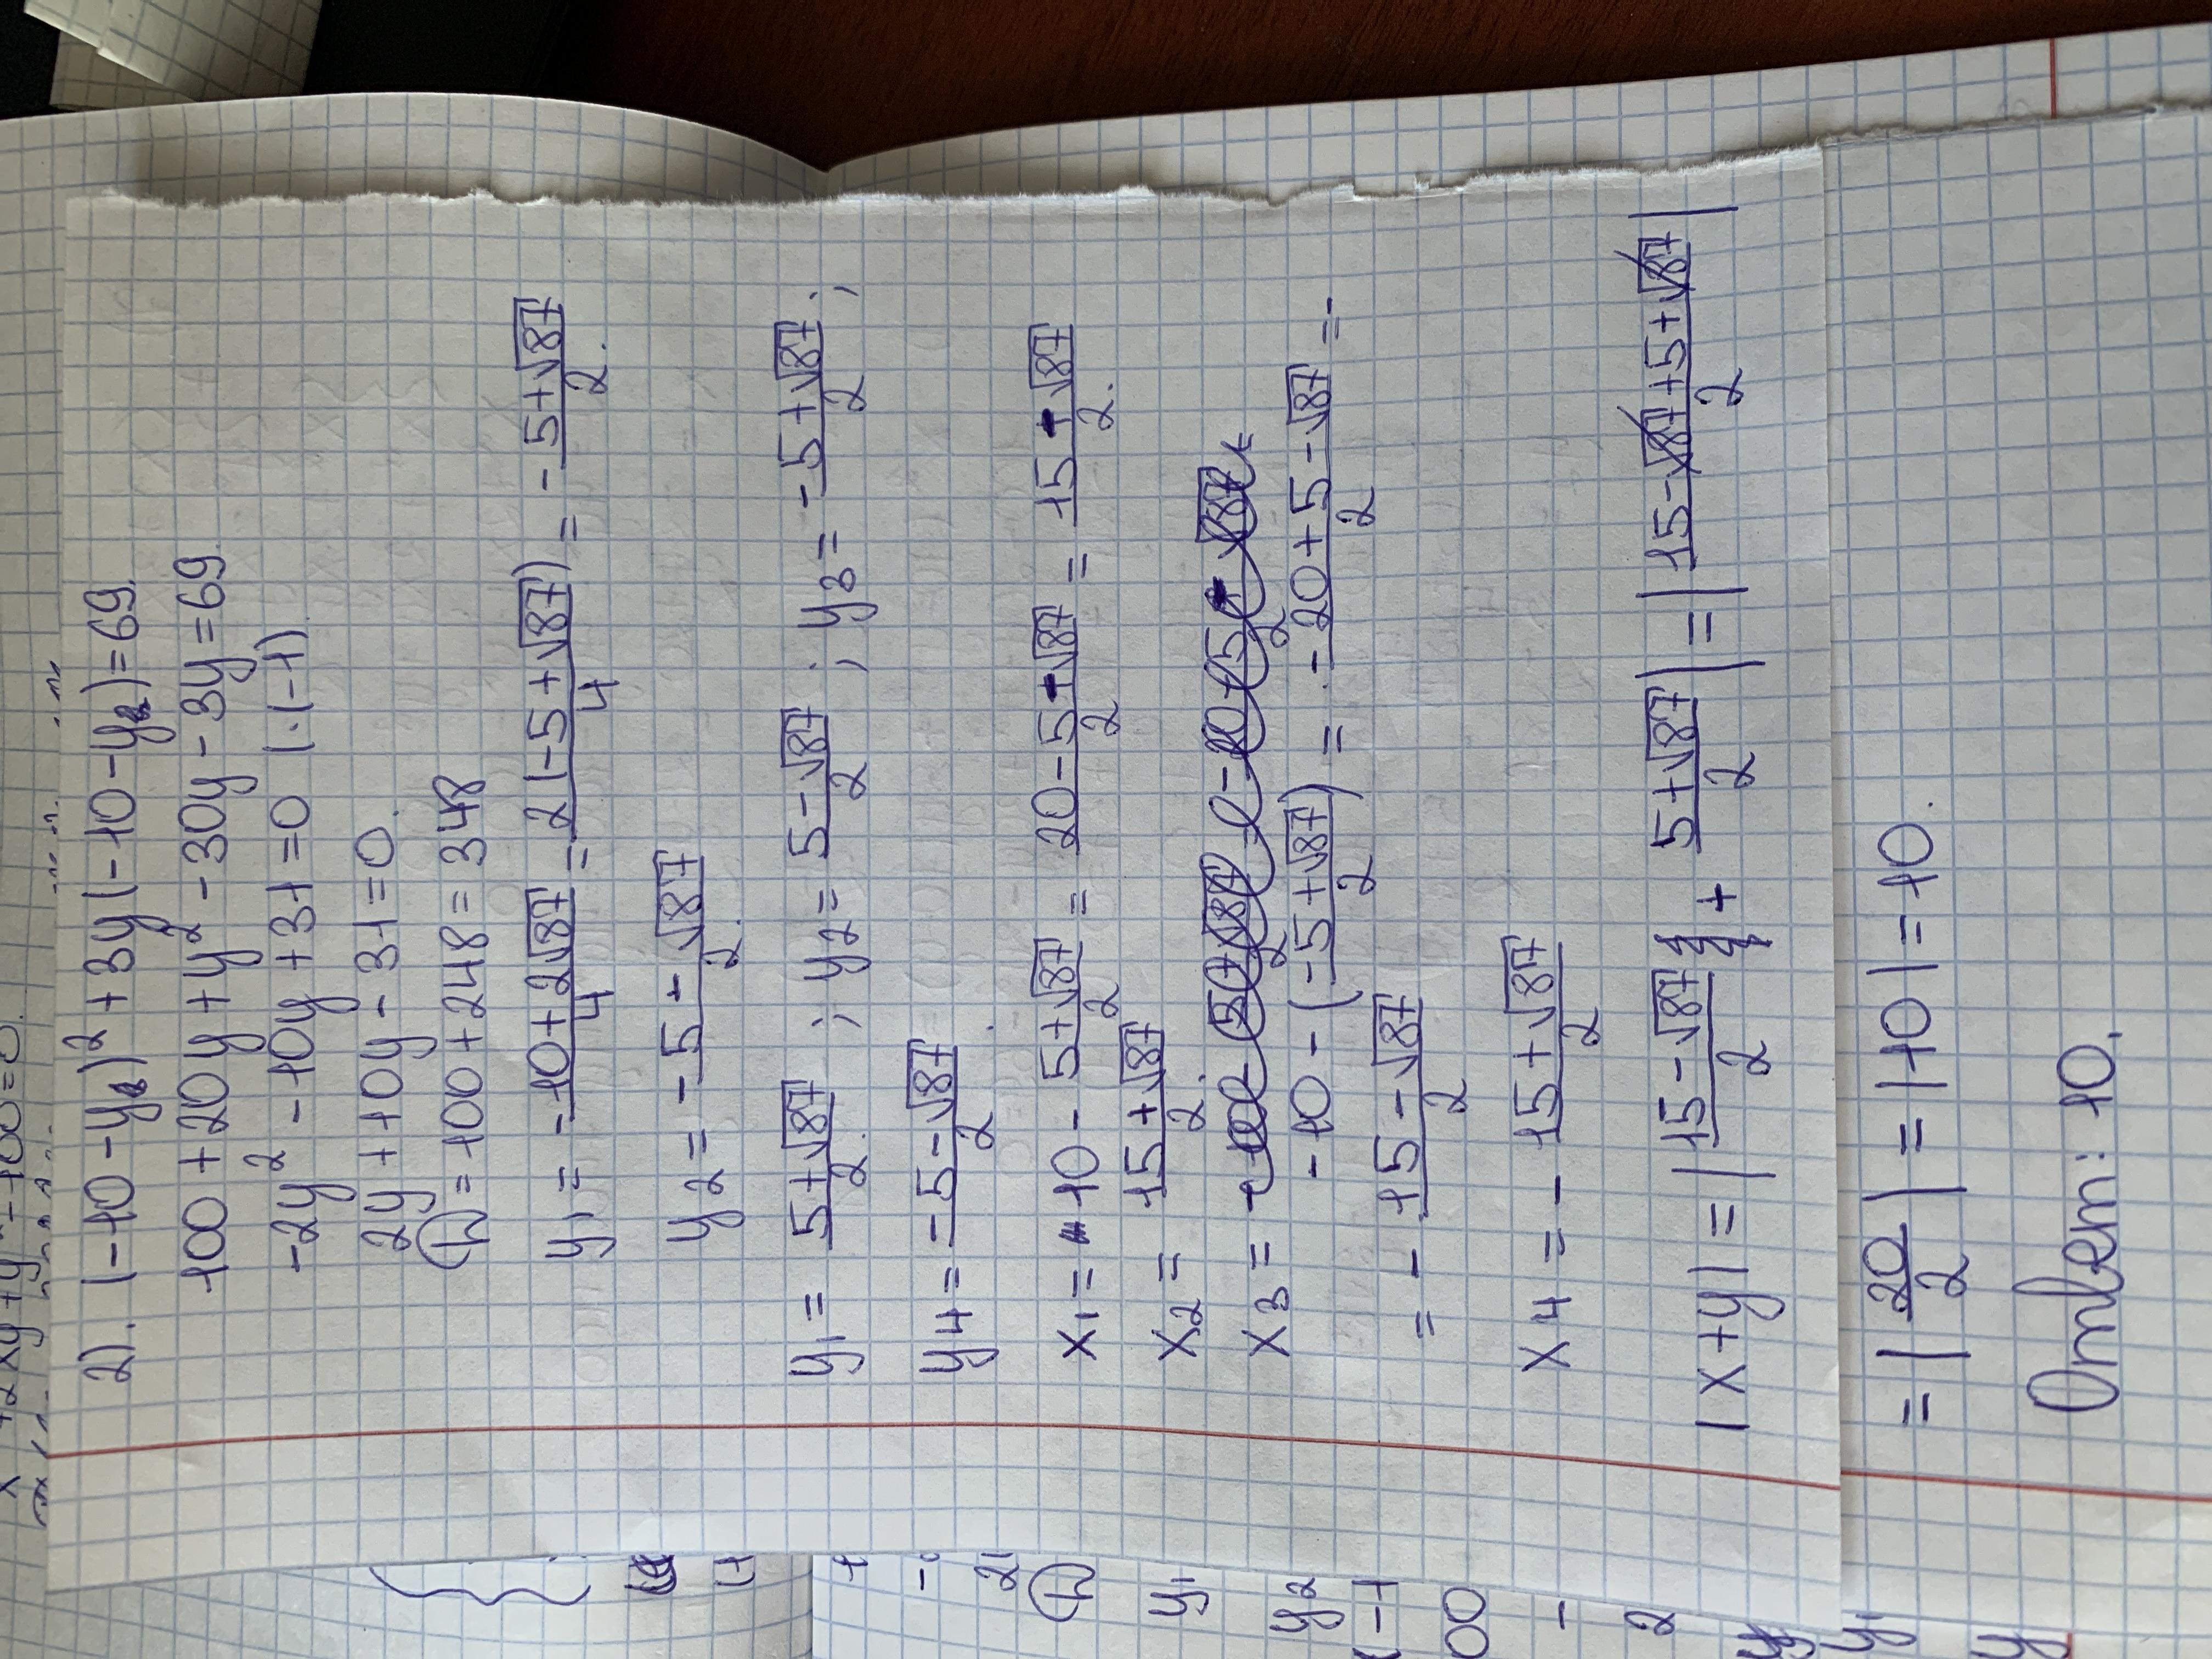 x² + 2xy + y² - 100 = 0.
2). (-10-y)² + 3y(-10-y) = 69.
100 + 20y + y² - 30y - 3y = 69.
-2y² - 10y + 31 = 0 |·(-1)
2y + 10y - 31 = 0.
D = 100 + 248 = 348
y₁ = -10+2√87/4 = 2(-5+√87)/4 = -5+√87/2.
y₂ = -5-√87/2.
y₁ = 5+√87/2. ; y₂ = 5-√87/2 ; y₃ = -5+√87/2 ;
y₄ = -5-√87/2.
x₁ = 10 - 5+√87/2 = 20-5-√87/2 = 15-√87/2.
x₂ = 15+√87/2.
x₃ =
-10 - (-5+√87/2) = -20+5-√87/2 =
= - 15-√87/2
x₄ = - 15+√87/2
|x+y| = |15-√87/2 + 5+√87/2| = |15-√87+5+√87/2|
= |20/2| = |10| = 10.
Ответ: 10.
2
D
y₁
y₂
(-1
00
-
2
y
y₁
y